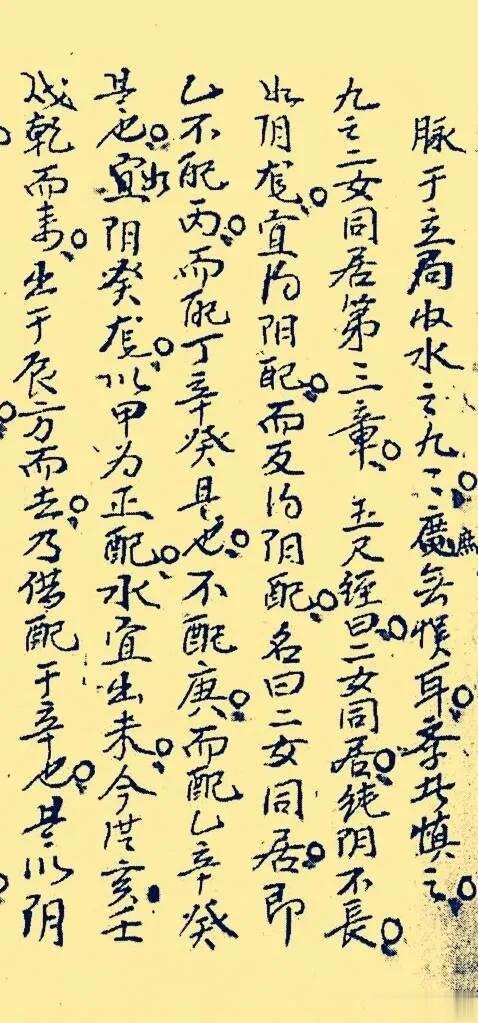 脉于立局收水之九。庶無悞耳。幸此慎之。
九之二女同居第三章。玉尺經曰。二女同居。純阴不長。
如阴龙。宜得阳配。而反得阴配。名曰二女同居。即
乙不配丙。而配丁辛癸是也。不配庚。而配乙辛癸
是也。如宜阴癸龙。以甲为正配。水宜出未。今從亥壬
戌乾而来。出于辰方而去。乃借配于辛也。是以阴